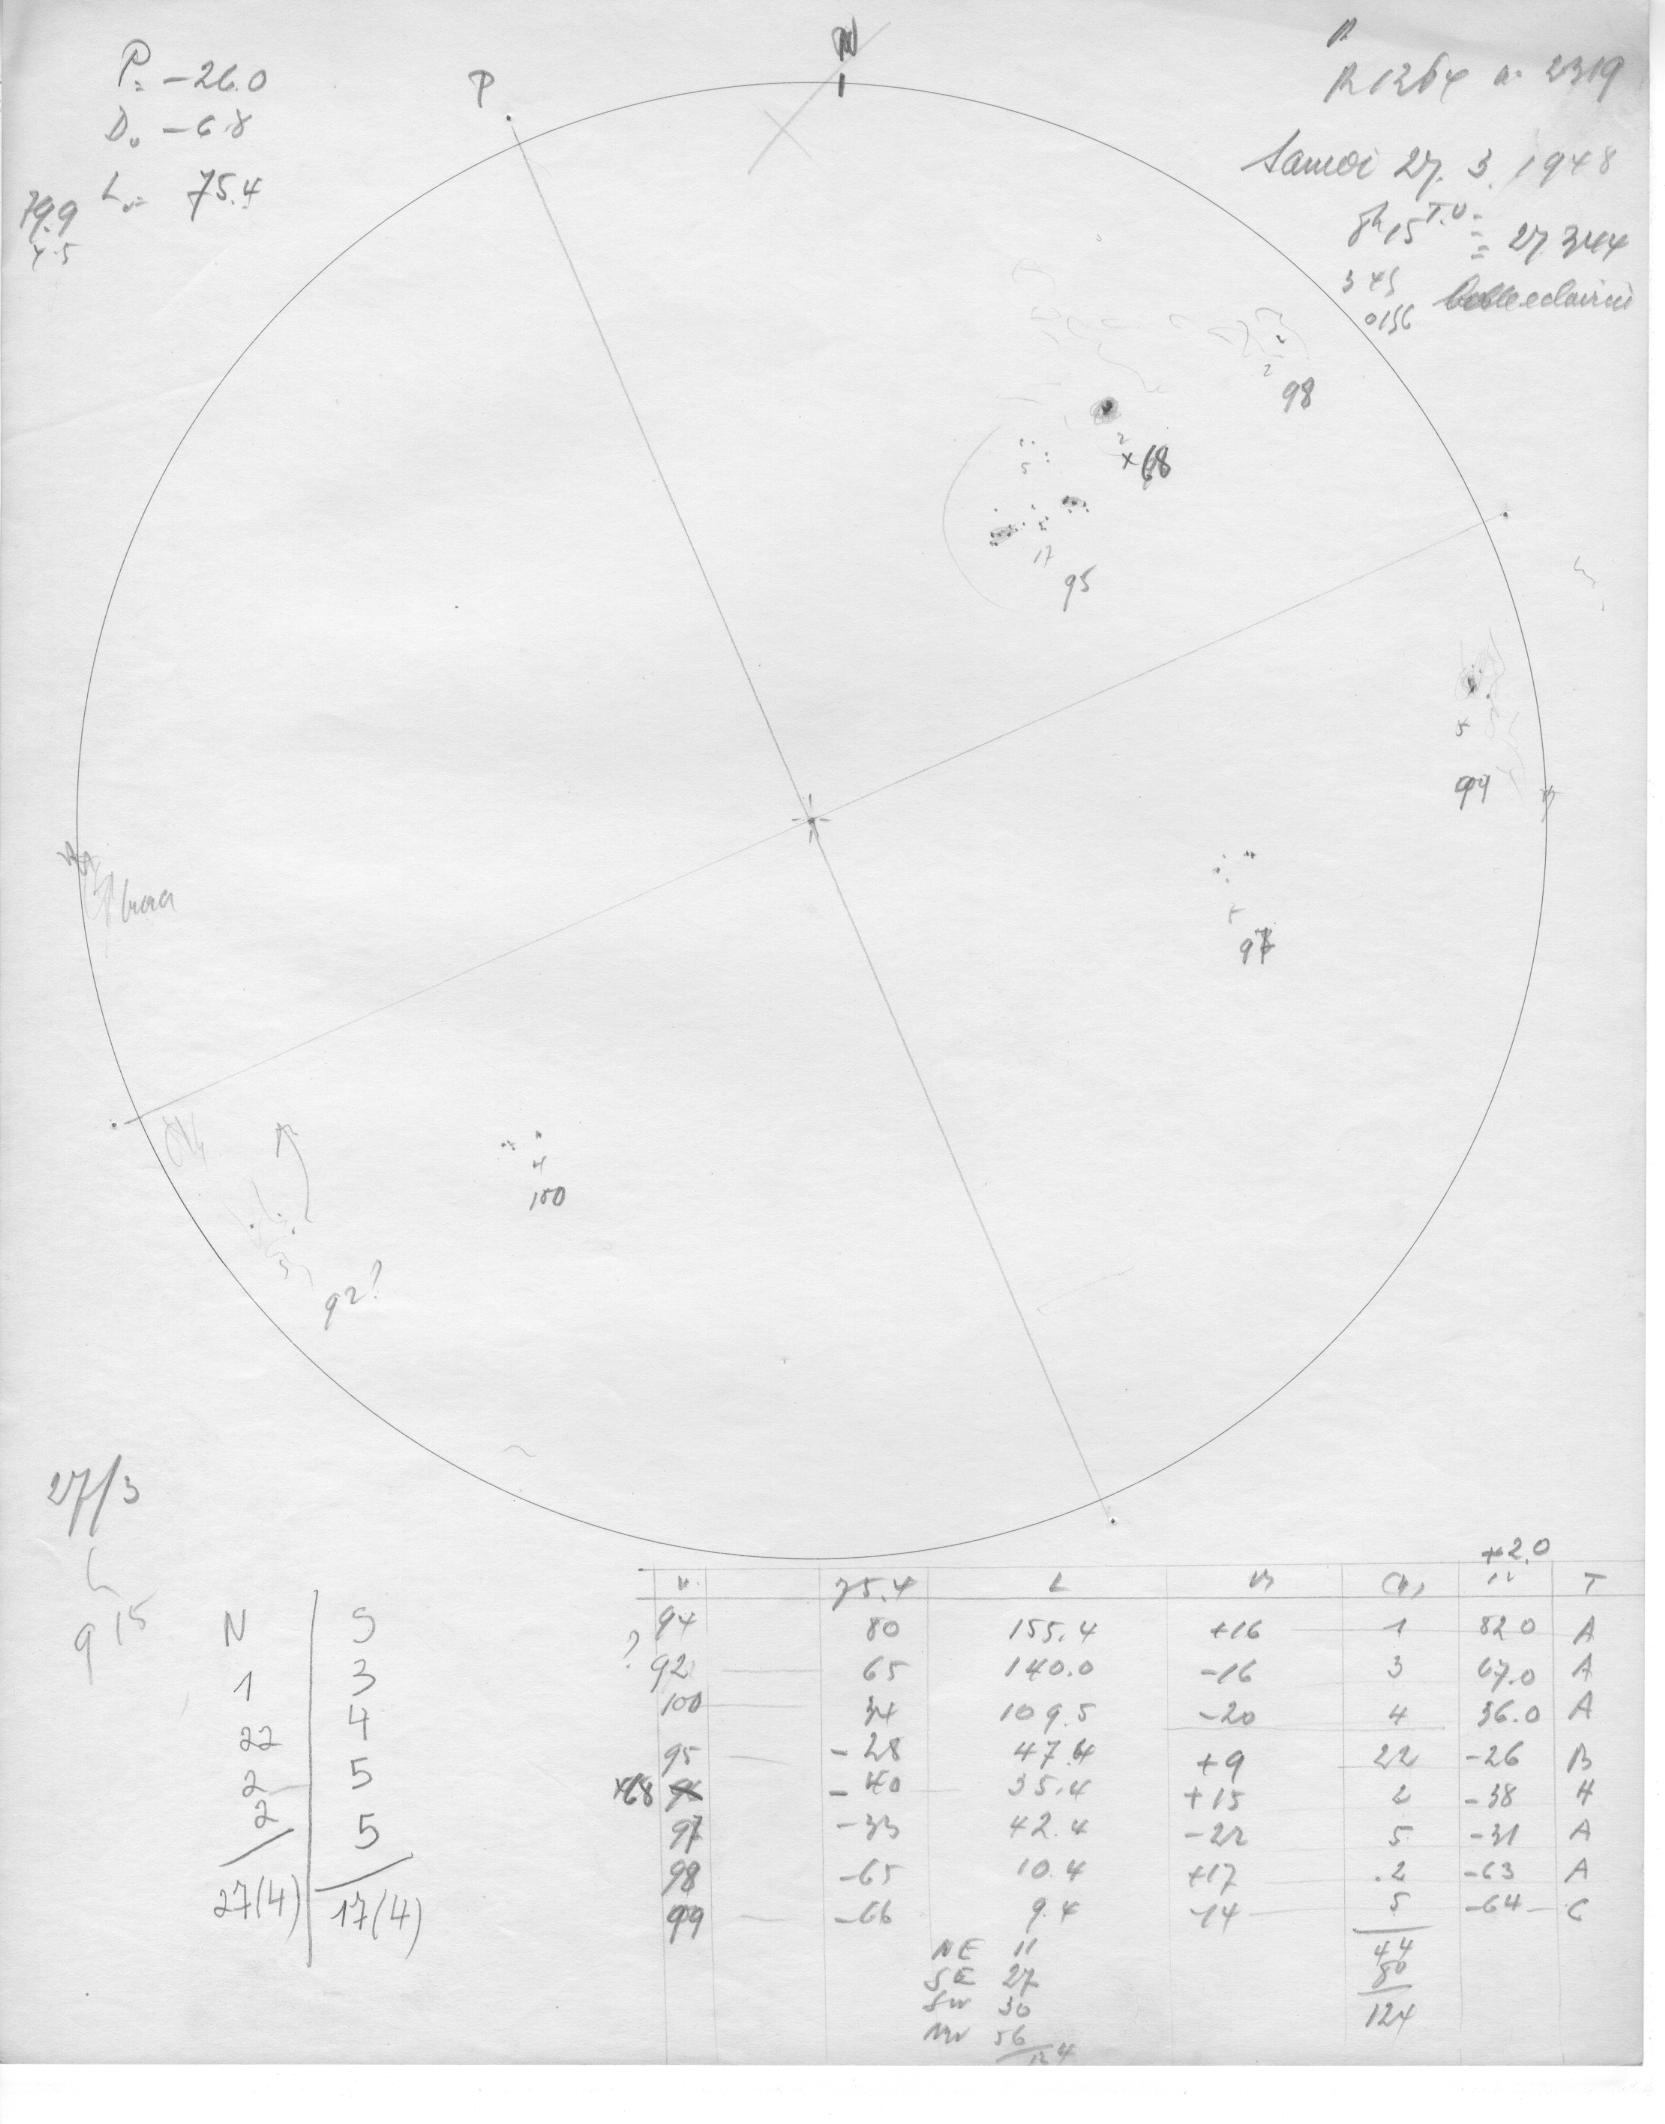 P= -26.0
D. -6.8
L.= 75.4
79.9
4.5
P
N
R 1264 a: 2319
Samedi 27. 3. 1948
8h15 T.U.
= 27.344
345
0156
Belle eclaircie
2
98
2
×68
5
17
95
5
99
5
97
4
100
3
92?
27/3
9 15
N S
1 3
22 4
2 5
2 5
27(4) 17(4)
+2.0
n. 75.4 L B T
94 80 155.4 +16 1 82.0 A
? 92 65 140.0 -16 3 67.0 A
100 34 109.5 -20 4 36.0 A
95 -28 47.4 +9 22 -26 B
×68 -40 35.4 +15 2 -38 H
97 -33 42.4 -22 5 -31 A
98 -65 10.4 +17 2 -63 A
99 -66 9.4 -14 5 -64 C
NE 11
SE 27
SW 30
NW 56
124
44
80
124